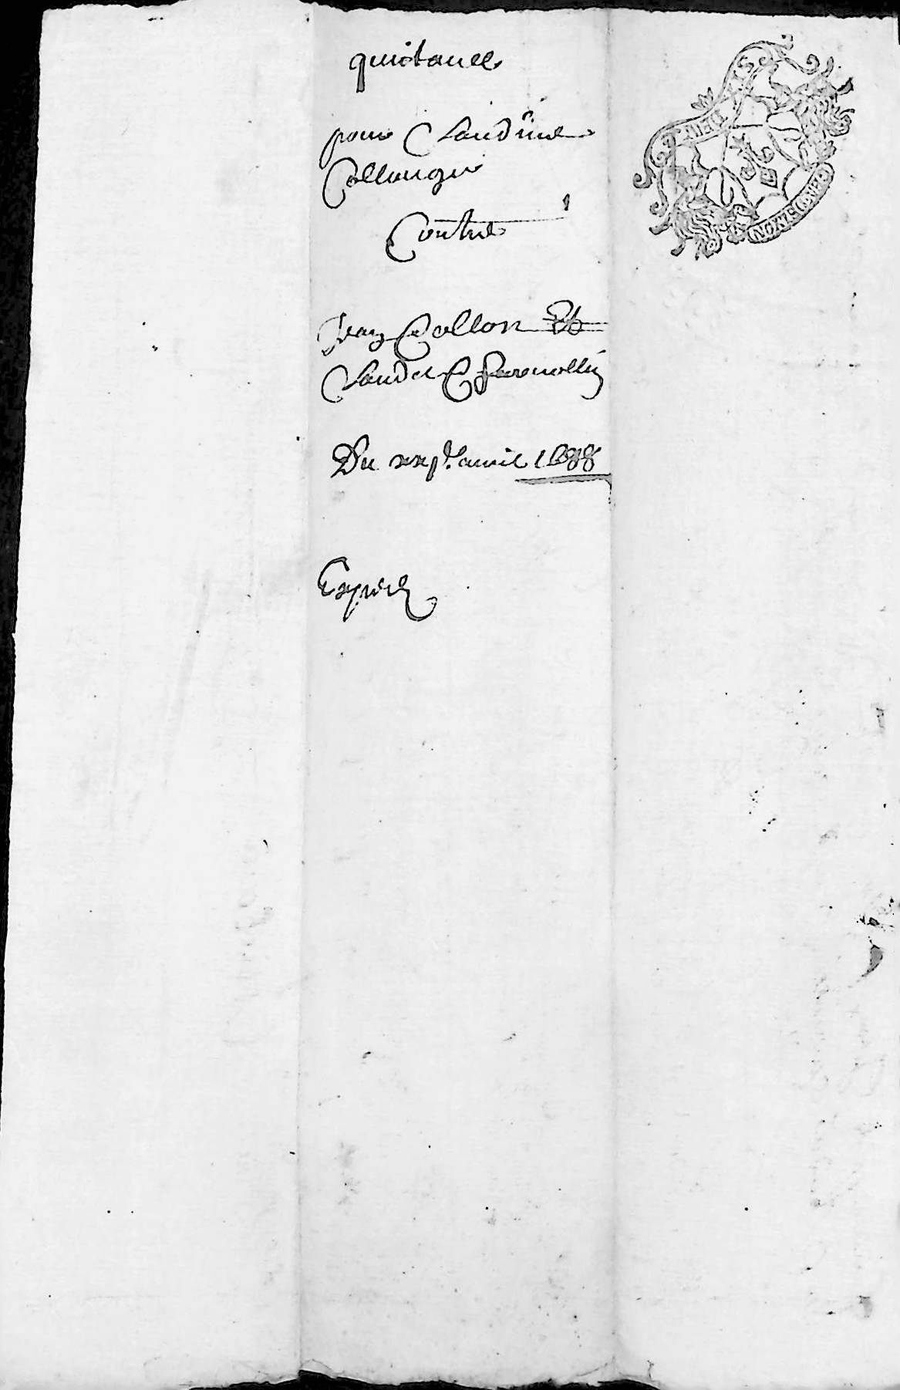 quictance
pour Claudine
Collange
Contre
Jean Collon Et
Claude
Du xxpr avril 1688
Expedié